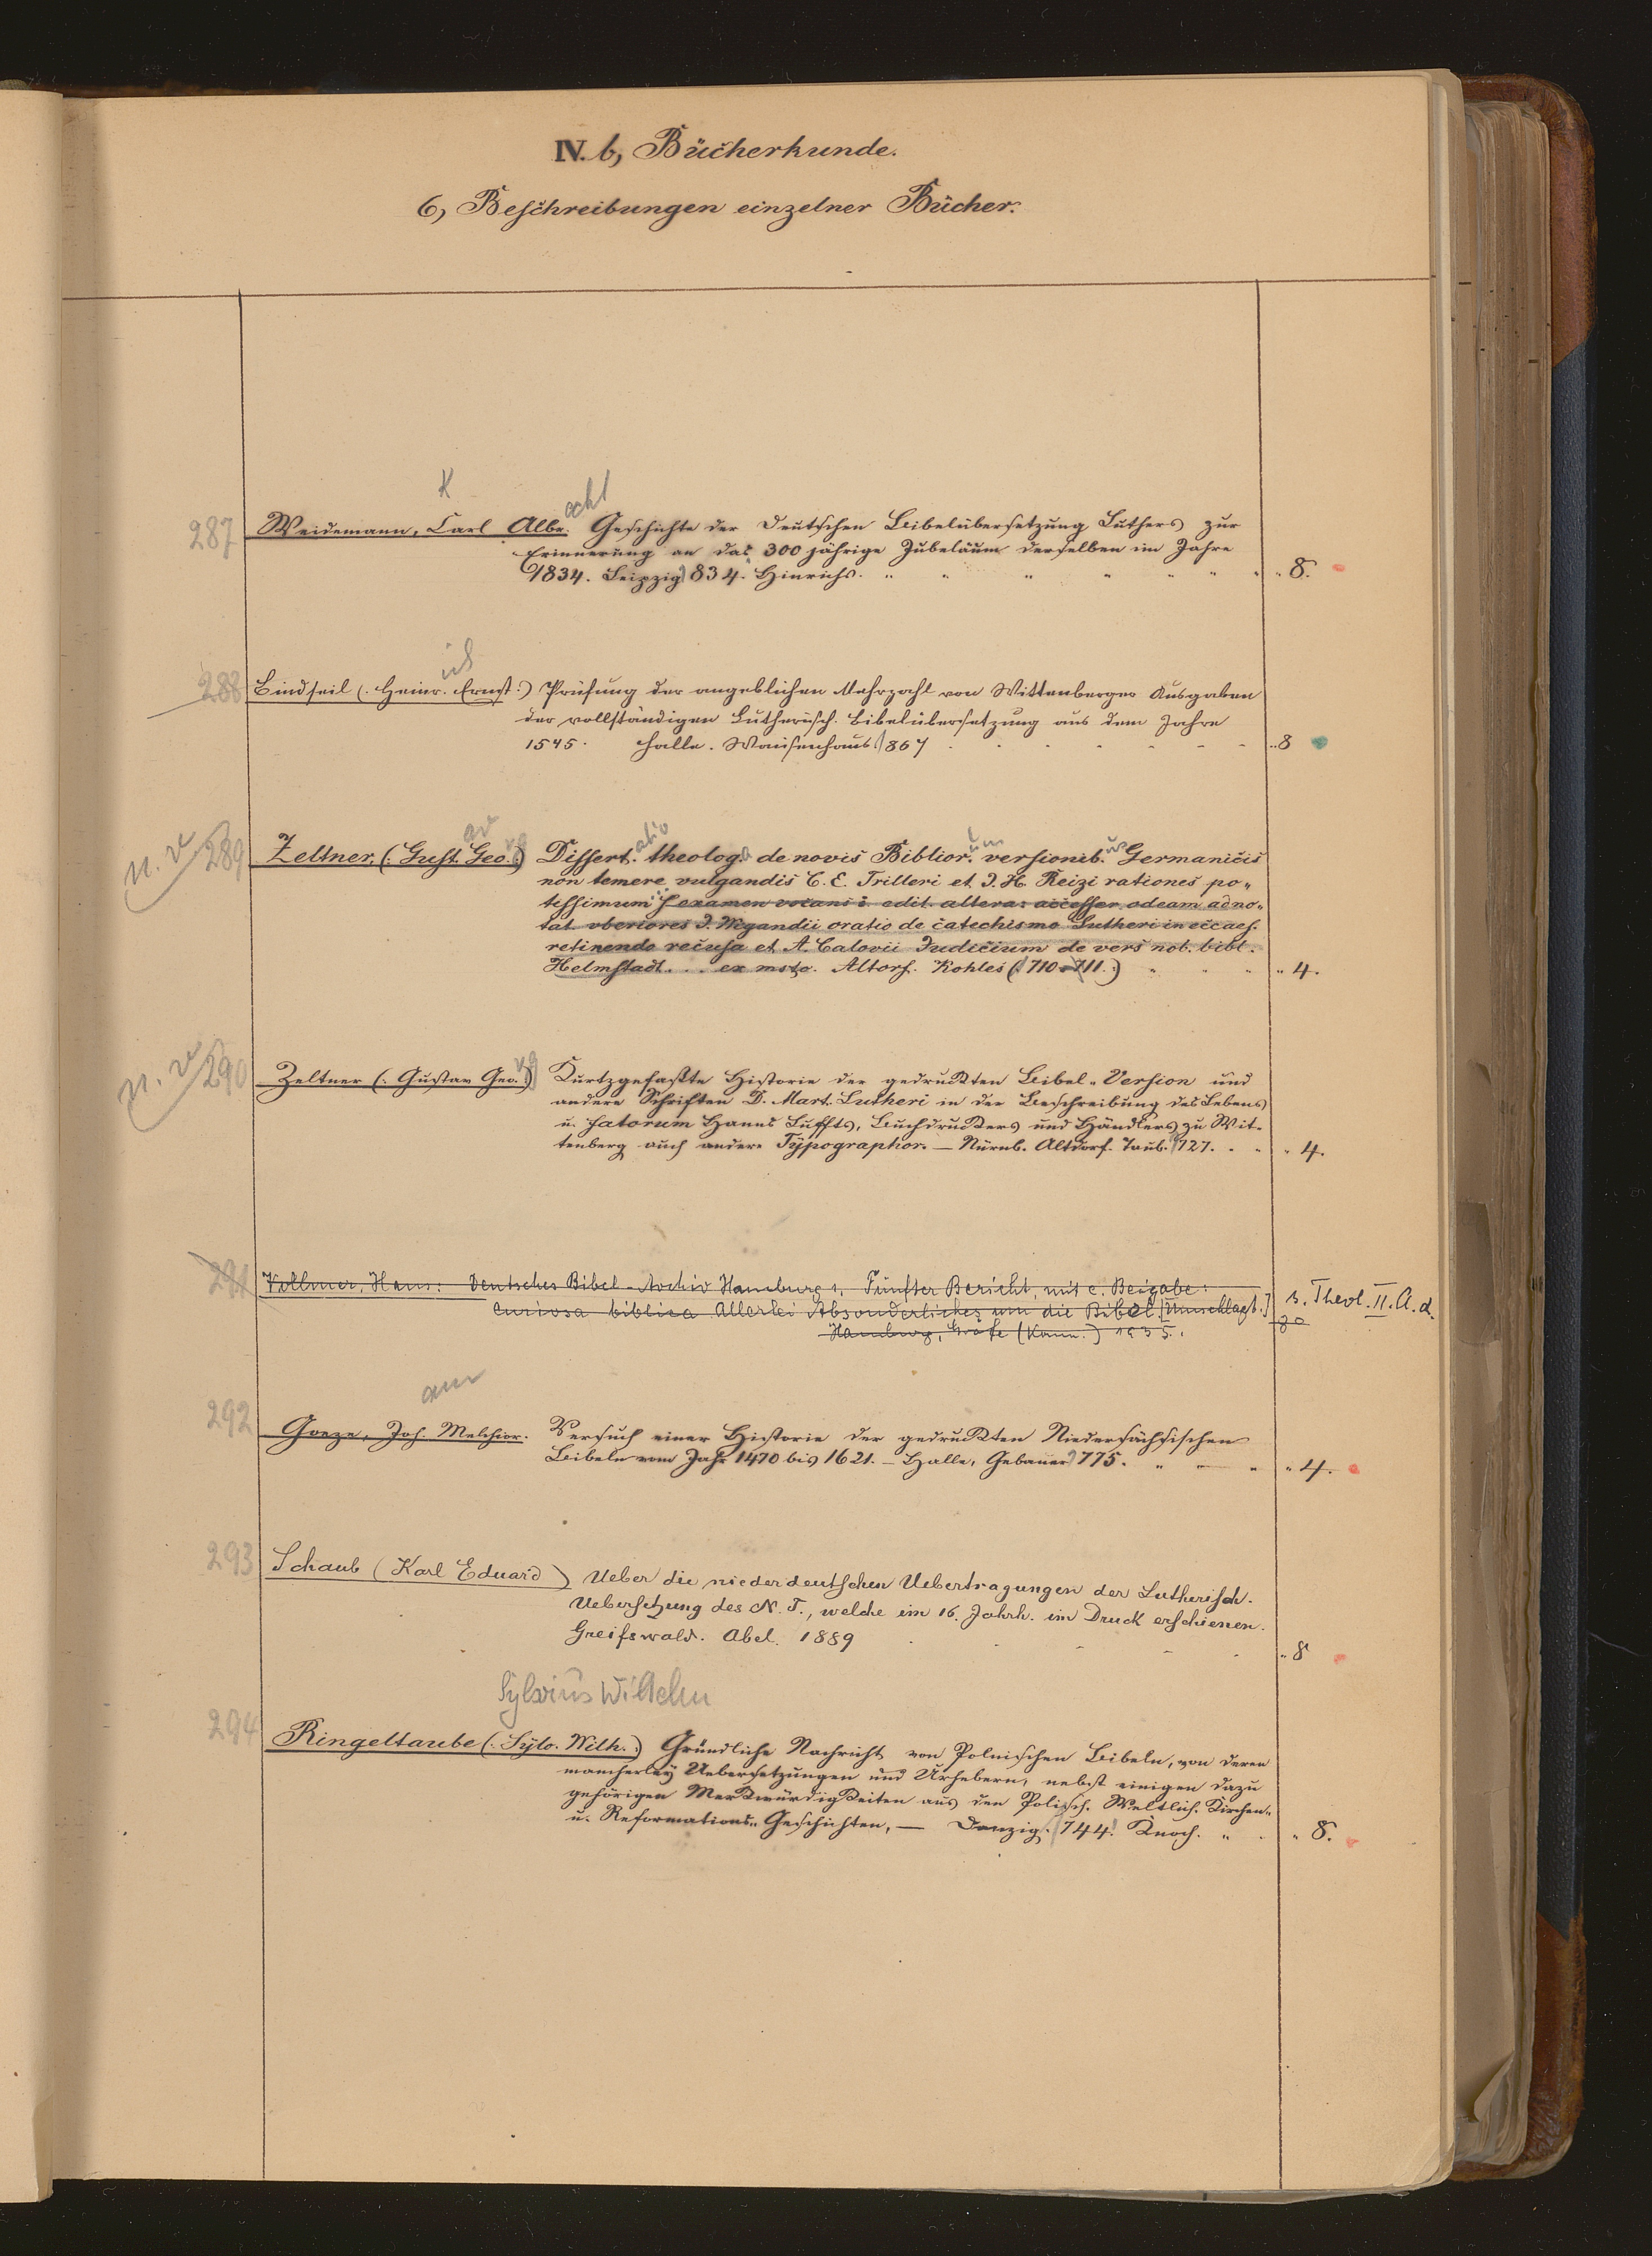 IV. b, Bücherkunde.
6, Beschreibungen einzelner Bücher.
K
acht
287 Weidemann, Carl Albr. Geschichte der Deutschen Bibelübersetzung Luthers zur
Erinnerung an das 300 jährige Jubeläum derselben im Jahre
1834. Leipzig 834. Hinrichs. " 8.
ich
288 Bindseil (: Heinr. Ernst :) Prüfung der angeblichen Mehrzahl von Wittenberger Ausgaben
der vollständigen Lutherisch. Bibelübersetzung aus dem Jahre
1545. Halle. Waisenhaus. 867 " 8
n. v.
289 Zeltner, (: Gust. Geo. :) Dissert. theolog. de novis Biblior. versionib. Germanicis
atio um us
non temere vulgandis C. E. Trilleri et J. H. Reizi rationes po„
tissimum examen vocans i. edit. altera: accesser. adeam adno„
tat. vberiores J. Wigandii oratio de catechismo Lutheri in eccaes.
retinendo recusa et A. Calovii Judicium de vers nob. bibl.
Helmstadt... ex msto. Altorf. Kohles (: 710-711. :) " 4.
n. v.
290 Zeltner (: Gustav Geo. :) Kurtzgefaßte Historie der gedruckten Bibel„ Version und
andere Schriften D. Mart. Lutheri in der Beschreibung des Lebens
u. Fatorum Hanns Luffts, Buchdruckers und Händlers zu Wit„
tenberg auch andere Typographor. — Nürnb. Altdorf. Taub. 727. " 4.
291 Vollmer, Hans: Deutsches Bibel-Archiv Hamburg 1, Fünfter Bericht, mit e. Beigabe:
Curiosa biblica Allerlei Absonderliches um die Bibel. [Umschlagt.] s. Theol. II. A. d.
Hamburg, Gräfe (Komm.) 1935. 8°
ann
292 Goeze, Joh. Melchior. Versuch einer Historie der gedruckten Niedersächsischen
Bibeln vom Jahr 1470 bis 1621. — Halle, Gebauer 775. " 4.
293 Schaub (Karl Eduard) Ueber die niederdeutschen Uebertragungen der Lutherisch.
Uebersetzung des N. T., welche im 16. Jahrh. im Druck erschienen.
Greifswald. Abel. 1889 " 8
Sylvius Wilhelm
294 Ringeltaube (: Sylv. Wilh. :) Gründliche Nachricht von Polnischen Bibeln, von deren
mancherley Uebersetzungen und Urhebern, nebst einigen dazu
gehörigen Merkwürdigkeiten aus den Polisch. Weltlich. Kirchen„
u. Reformations„ Geschichten, — Danzig. 744. Knoch. " 8.